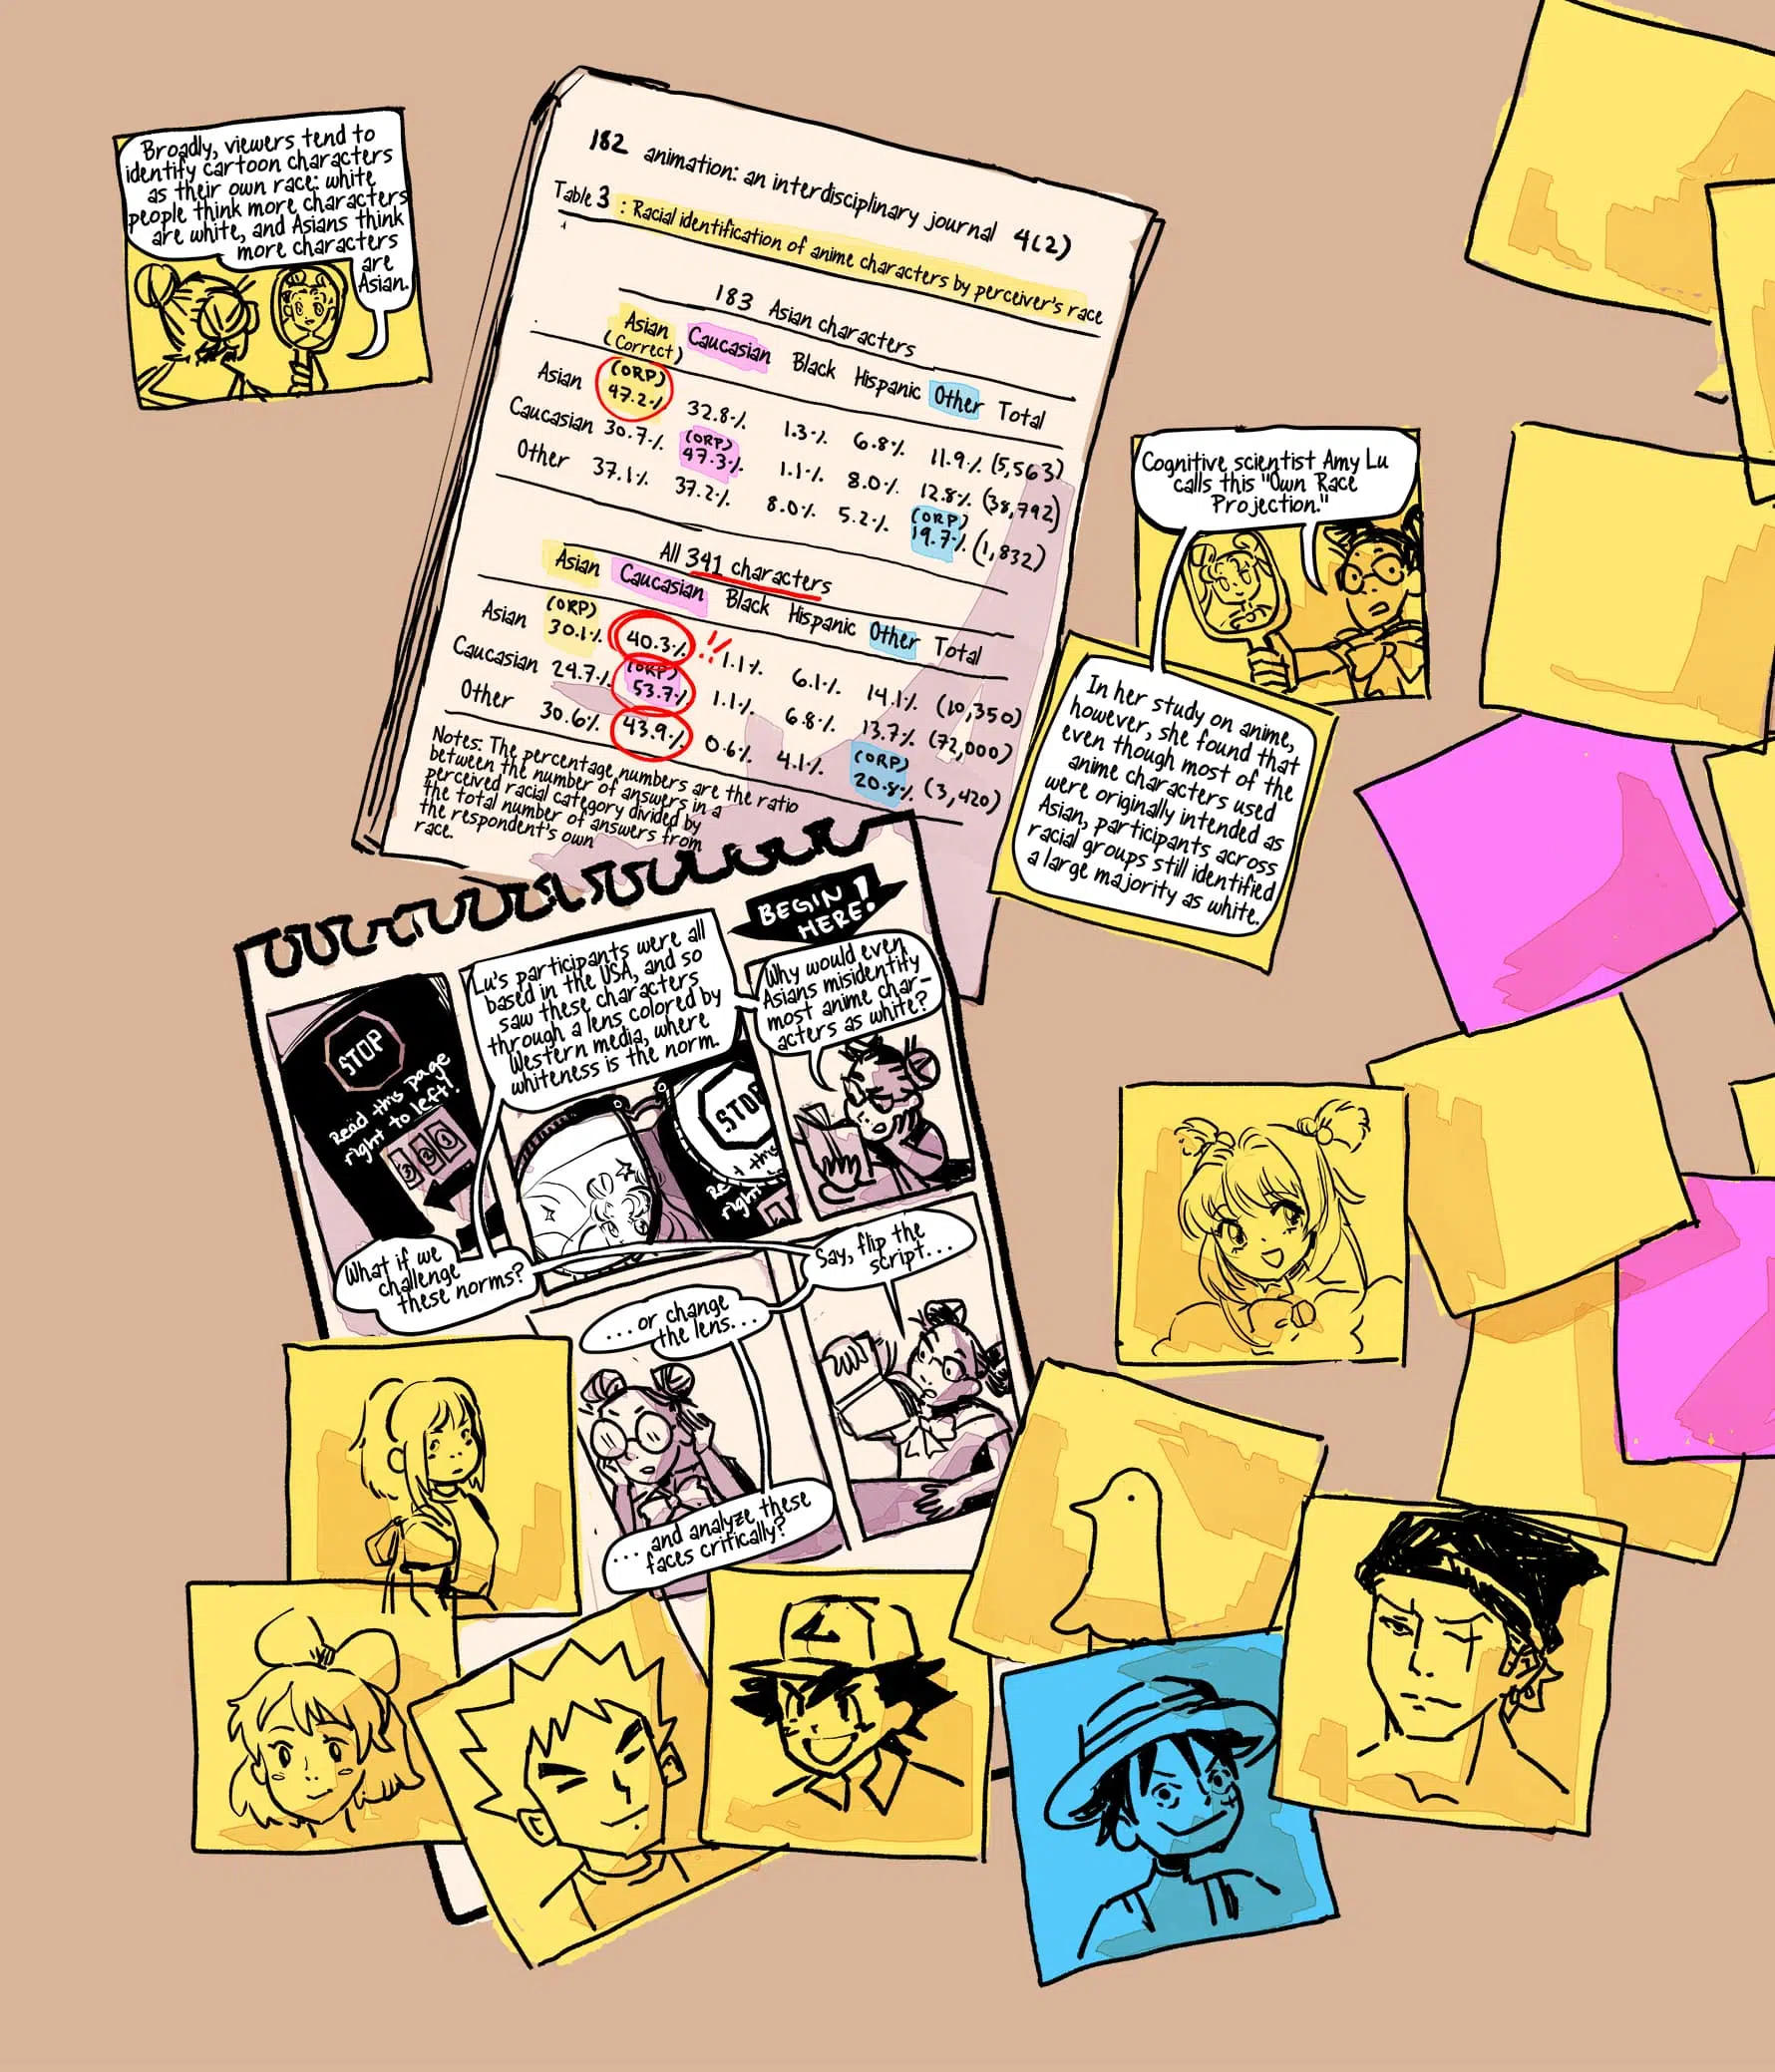 Broadly, viewers tend to
identify cartoon characters
as their own race: white
people think more characters
are white, and Asians think
more characters
are
Asian.
182 animation: an interdisciplinary journal 4(2)
Table 3 : Racial identification of anime characters by perceiver's race
183 Asian characters
Asian (Correct) Caucasian Black Hispanic Other Total
Asian (ORP) 47.2% 32.8% 1.3% 6.8% 11.9% (5,563)
Caucasian 30.7% (ORP) 47.3% 1.1% 8.0% 12.8% (38,792)
Other 37.1% 37.2% 8.0% 5.2% (ORP) 19.7% (1,832)
All 341 characters
Asian Caucasian Black Hispanic Other Total
Asian (ORP) 30.1% 40.3% !! 1.1% 6.1% 14.1% (10,350)
Caucasian 29.7% (ORP) 53.7% 1.1% 6.8% 13.7% (72,000)
Other 30.6% 43.9% 0.6% 4.1% (ORP) 20.8% (3,420)
Notes: The percentage numbers are the ratio
between the number of answers in a
perceived racial category divided by
the total number of answers from
the respondent's own
race.
Cognitive scientist Amy Lu
calls this "Own Race
Projection."
In her study on anime,
however, she found that
even though most of the
anime characters used
were originally intended as
Asian, participants across
racial groups still identified
a large majority as white.
BEGIN
HERE!
Why would even
Asians misidentify
most anime char-
acters as white?
Lu's participants were all
based in the USA, and so
saw these characters
through a lens colored by
Western media, where
whiteness is the norm.
STOP
Read this
right
STOP
Read this page
right to left!
3 2 1
What if we
challenge
these norms?
Say, flip the
script...
...or change
the lens...
...and analyze these
faces critically?